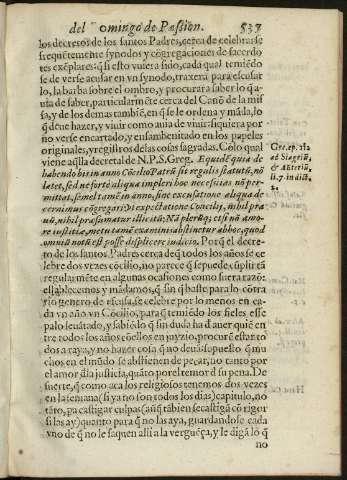 del Domingo de Passion. 537
los decretos de los santos Padres, cerca de celebrarse
frequētemente synodos y cōgregaciones de sacerdo
tes exēplares: q̃ si esto vuiera sido, cada qual temiēdo
se de verse acusar en vn synodo, traxera para escusar
lo, la barba sobre el ombro, y procurara saber lo q̃ a-
uia de saber, particularmēte cerca del Canō de la mis
sa, y de los demas tambiē, en q̃ se le ordena y māda, lo
q̃ deue hazer, y viuir como auia de viuir: siquiera por
no verse encartado, y ensambenitado en los papeles
originales, y registros delas cosas sagradas. Cō lo qual
viene aq̃lla decretal de N.P.S. Greg. Equidē quia de
habendo bis in anno Cōcilio Patrū sit regulis statutū, nō
latet, sed ne forte aliqua impleri hoc necessitas nō per-
mittat, semel tamē in anno, sine excusatione aliqua de
cernimus cōgregari: Vt expectatione Concilij, nihil pra
uū, nihil præsumatur illicitū: Nā plerūq; etsi nō amo-
re iustitiæ, metu tamē examinis abstinetur ab hoc, quod
omniū notū est posse displicere iudicio. Porq̃ el decre-
to de los santos Padres cerca de q̃ todos los años se ce
lebre dos vezes cōcilio, no parece q̃ se puede cūplir tā
regularmēte en algunas ocasiones como fuera razō:
establecemos y mādamos, q̃ sin q̃ baste para lo cōtra
rio genero de escusa, se celebre por lo menos en ca-
da vn año vn Cōcilio, para q̃ temiēdo los fieles esse
palo leuātado, y sabiēdo q̃ sin duda ha d'auer quiē en
tre todos los años cō ellos en juyzio, procurē estar to
dos a raya, y no hazer cosa q̃ no deuā: supuesto q̃ mu
chos en el mūdo se abstienen de pecar, no tanto por
el amor d'la justicia, quāto por el temor d'su pena. De
suerte, q̃ como aca los religiosos tenemos dos vezes
en la semana (si ya no son todos los dias) capitulo, no
tāto, pa castigar culpas (auñq̃ tābien se castigā cō rigor
si las ay) quanto para q̃ no las aya, guardandose cada
vno de q̃ no le saquen alli a la verguēça, y le digā lo q̃
no
Greg. ep. 182
ad Siagriū,
& Ætheriū
li. 7 indict.
2.